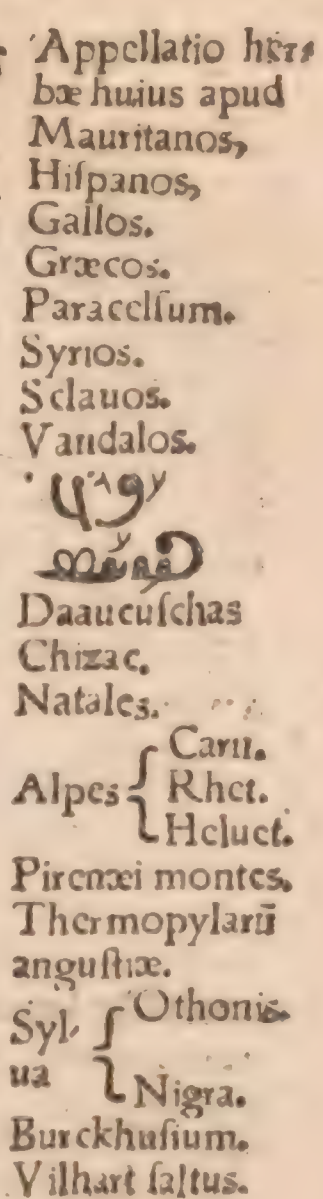 Appellatio her⸗
bæ huius apud
Mauritanos,
Hiſpanos,
Gallos.
Græcos.
Paracelſum.
Syrios.
Sclauos.
Vandalos.
Daaucuſchas
Chizac.
Natales.
Alpes { Carn.
Rhet.
Heluet.
Pirenæi montes.
Thermopylarũ
anguſtiæ.
Syl-
ua { Othonis.
Nigra.
Burckhuſium.
Vilhart ſaltus.